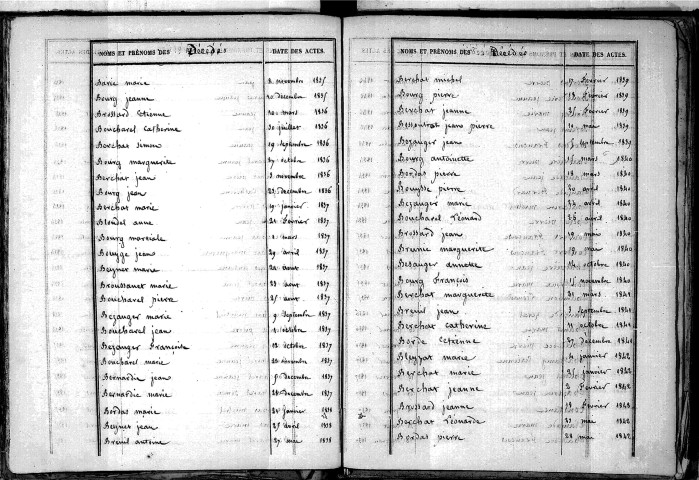 NOMS ET PRÉNOMS DES Décédés DATE DES ACTES.
Barie marie 2 novembre 1835
Bourg jeanne 20 décembre 1835
Brossard Etienne 20 mars 1836
Boucharel Catherine 30 juillet 1836
Berchat simon 19 septembre 1836
Bourg marguerite 27 octobre 1836
Berchat jean 3 novembre 1836
Bourg jean 23 décembre 1836
Berchat marie 19 janvier 1837
Blondel anne 21 février 1837
Bourg martiale 1 mars 1837
Bouyge jean 29 avril 1837
Beynet marie 22 aout 1837
Broussaux marie 23 aout 1837
Boucharel pierre 25 aout 1837
Bezanger marie 9 septembre 1837
Boucharel jean 1 octobre 1837
Bezanger François 12 octobre 1837
Boucharel marie 20 novembre 1837
Bernardie jean 5 décembre 1837
Bernardie marie 28 décembre 1837
Bordas marie 28 janvier 1838
Beynet jean 25 avril 1838
Breuil antoine 27 mai 1838
NOMS ET PRÉNOMS DES Décédés DATE DES ACTES.
Berchat michel 17 février 1839
Bourg pierre 18 février 1839
Berchat jeanne 25 février 1839
jean pierre 10 mai 1839
Bezanger jean 5 septembre 1839
Bourg antoinette mars 1840
Bordas pierre 18 mars 1840
Bouysse pierre 20 avril 1840
Bezanger marie 24 avril 1840
Boucharel Léonard 26 avril 1840
Brossard jean 10 mai 1840
Brunie marguerite 19 mai 1840
Bezanger annette 14 octobre 1840
Bourg François 15 novembre 1840
Berchat marguerite 21 mars 1841
Breuil jean 3 septembre 1841
Berchat Catherine 11 octobre 1841
Borde Etienne 27 décembre 1841
Bleyzat marie 4 janvier 1842
Berchat marie 25 janvier 1842
Berchat jeanne 2 février 1842
Brossard jeanne 18 février 1842
Berchat Léonarde 21 mai 1842
Bordas pierre 28 mai 1842